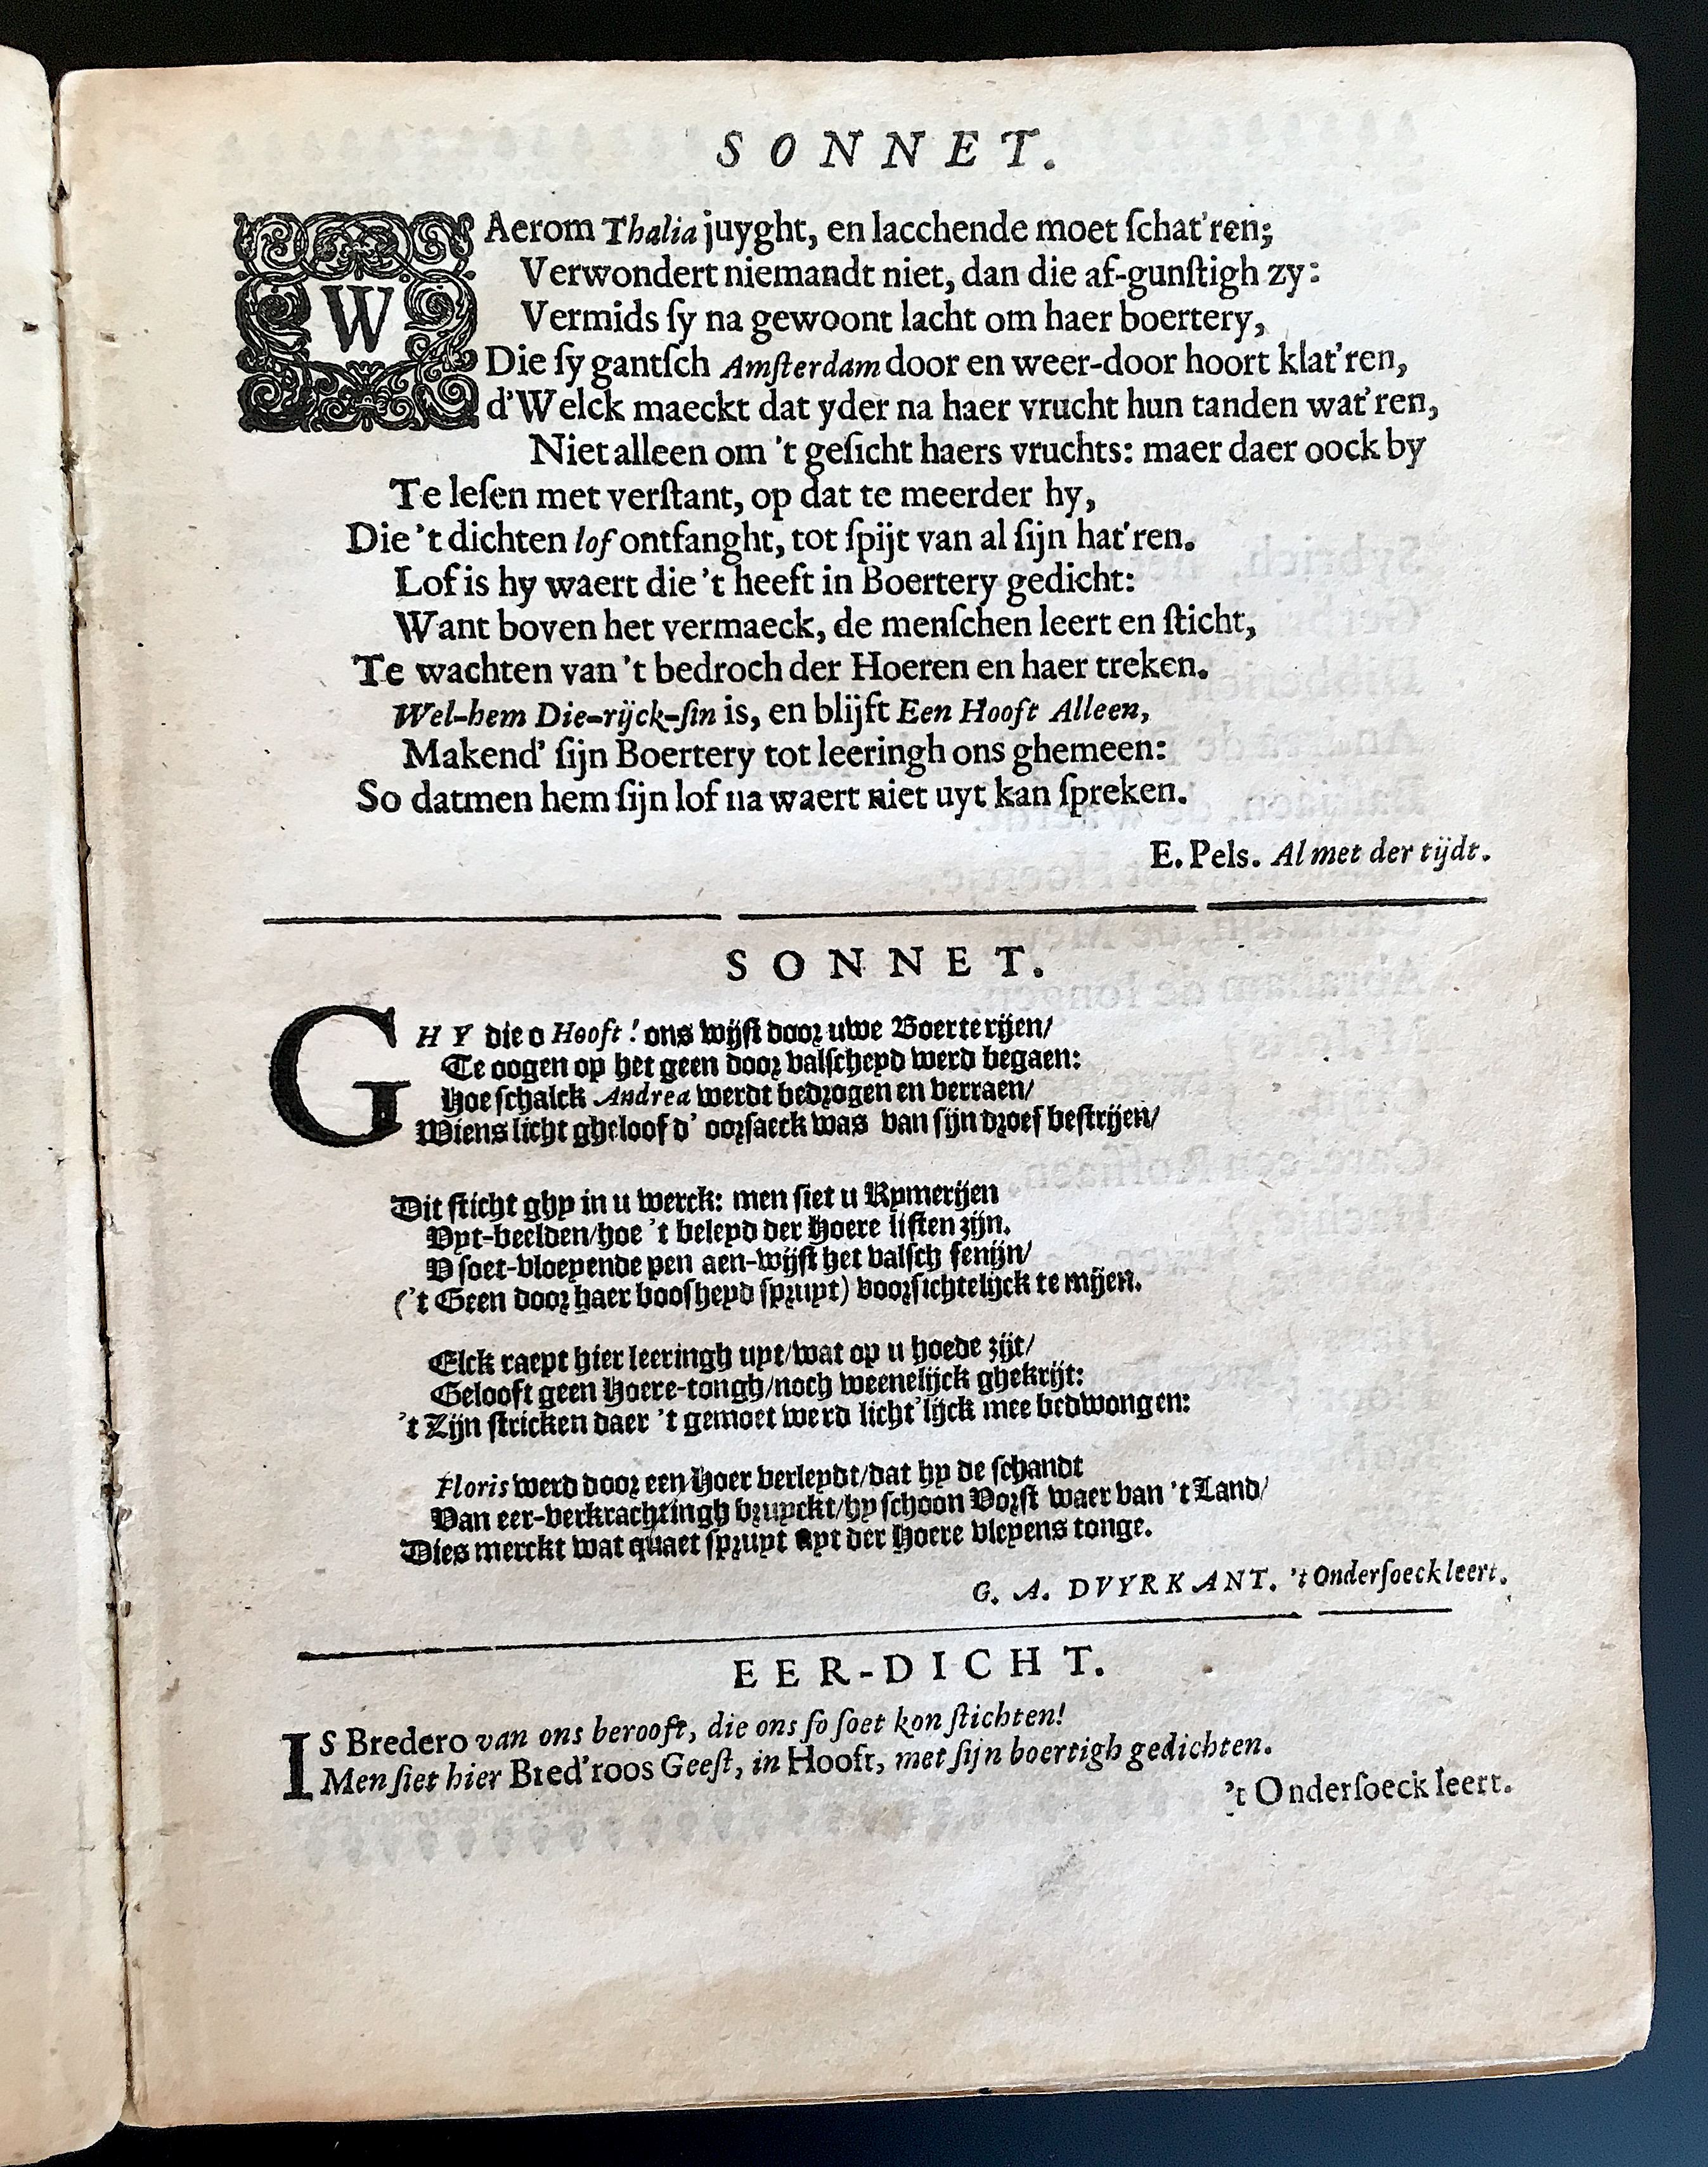 SONNET.
WAerom Thalia juyght, en lacchende moet ſchat'ren;
Verwondert niemandt niet, dan die af-gunſtigh zy:
Vermids ſy na gewoont lacht om haer boertery,
Die ſy gantſch Amſterdam door en weer-door hoort klat'ren,
d'Welck maeckt dat yder na haer vrucht hun tanden wat'ren,
Niet alleen om 't geſicht haers vruchts: maer daer oock by
Te leſen met verſtant, op dat te meerder hy,
Die 't dichten lof ontfanght, tot ſpijt van al ſijn hat'ren.
Lof is hy waert die 't heeft in Boertery gedicht:
Want boven het vermaeck, de menſchen leert en ſticht,
Te wachten van 't bedroch der Hoeren en haer treken.
Wel-hem Die-rijck-ſin is, en blijft Een Hooft Alleen,
Makend' ſijn Boertery tot leeringh ons ghemeen:
So datmen hem ſijn lof na waert niet uyt kan ſpreken.
E. Pels. Al met der tijdt.
SONNET.
GHY die o Hooft! ons wijſt door uwe Boerterijen/
Te oogen op het geen door valſcheyd werd begaen:
Hoe ſchalck Andrea werdt bedrogen en verraen/
Wiens licht gheloof d' oorſaeck was van ſijn droef beſtrijen/
Dit ſticht ghy in u werck: men ſiet u Rymerijen
Vyt-beelden/hoe 't beleyd der Hoere liſten zijn.
V ſoet-vloeyende pen aen-wijſt het valſch fenijn/
('t Geen door haer boosheyd ſpruyt) voorſichtelijck te mijen.
Elck raept hier leeringh uyt/wat op u hoede zijt/
Gelooft geen Hoere-tongh/noch weenelijck ghekrijt:
't Zijn ſtricken daer 't gemoet werd licht'lijck mee bedwongen:
Floris werd door een Hoer verleydt/dat hy de ſchandt
Van eer-verkrachtingh bruyckt/hy ſchoon Vorſt waer van 't Land/
Dies merckt wat quaet ſpruyt uyt der Hoere vleyens tonge.
G. A. DVYRKANT. 't Onderſoeck leert.
EER-DICHT.
IS Bredero van ons berooft, die ons ſo ſoet kon ſtichten!
Men ſiet hier Bred'roos Geeſt, in Hooft, met ſijn boertigh gedichten.
't Onderſoeck leert.